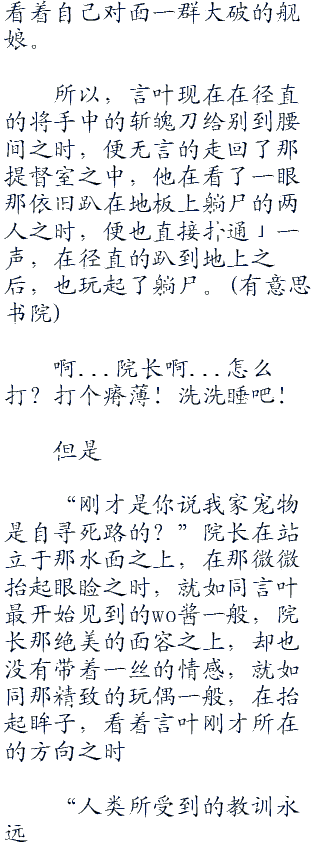 看着自己对面一群大破的舰
娘。
所以，言叶现在在径直
的将手中的斩魄刀给别到腰
间之时，便无言的走回了那
提督室之中，他在看了一眼
那依旧趴在地板上躺尸的两
人之时，便也直接扑通」一
声，在径直的趴到地上之
后，也玩起了躺尸。(有意思
书院)
啊...院长啊...怎么
打？打个瘠薄！洗洗睡吧！
但是
“刚才是你说我家宠物
是自寻死路的？”院长在站
立于那水面之上，在那微微
抬起眼睑之时，就如同言叶
最开始见到的wo酱一般，院
长那绝美的面容之上，却也
没有带着一丝的情感，就如
同那精致的玩偶一般，在抬
起眸子，看着言叶刚才所在
的方向之时
“人类所受到的教训永
远